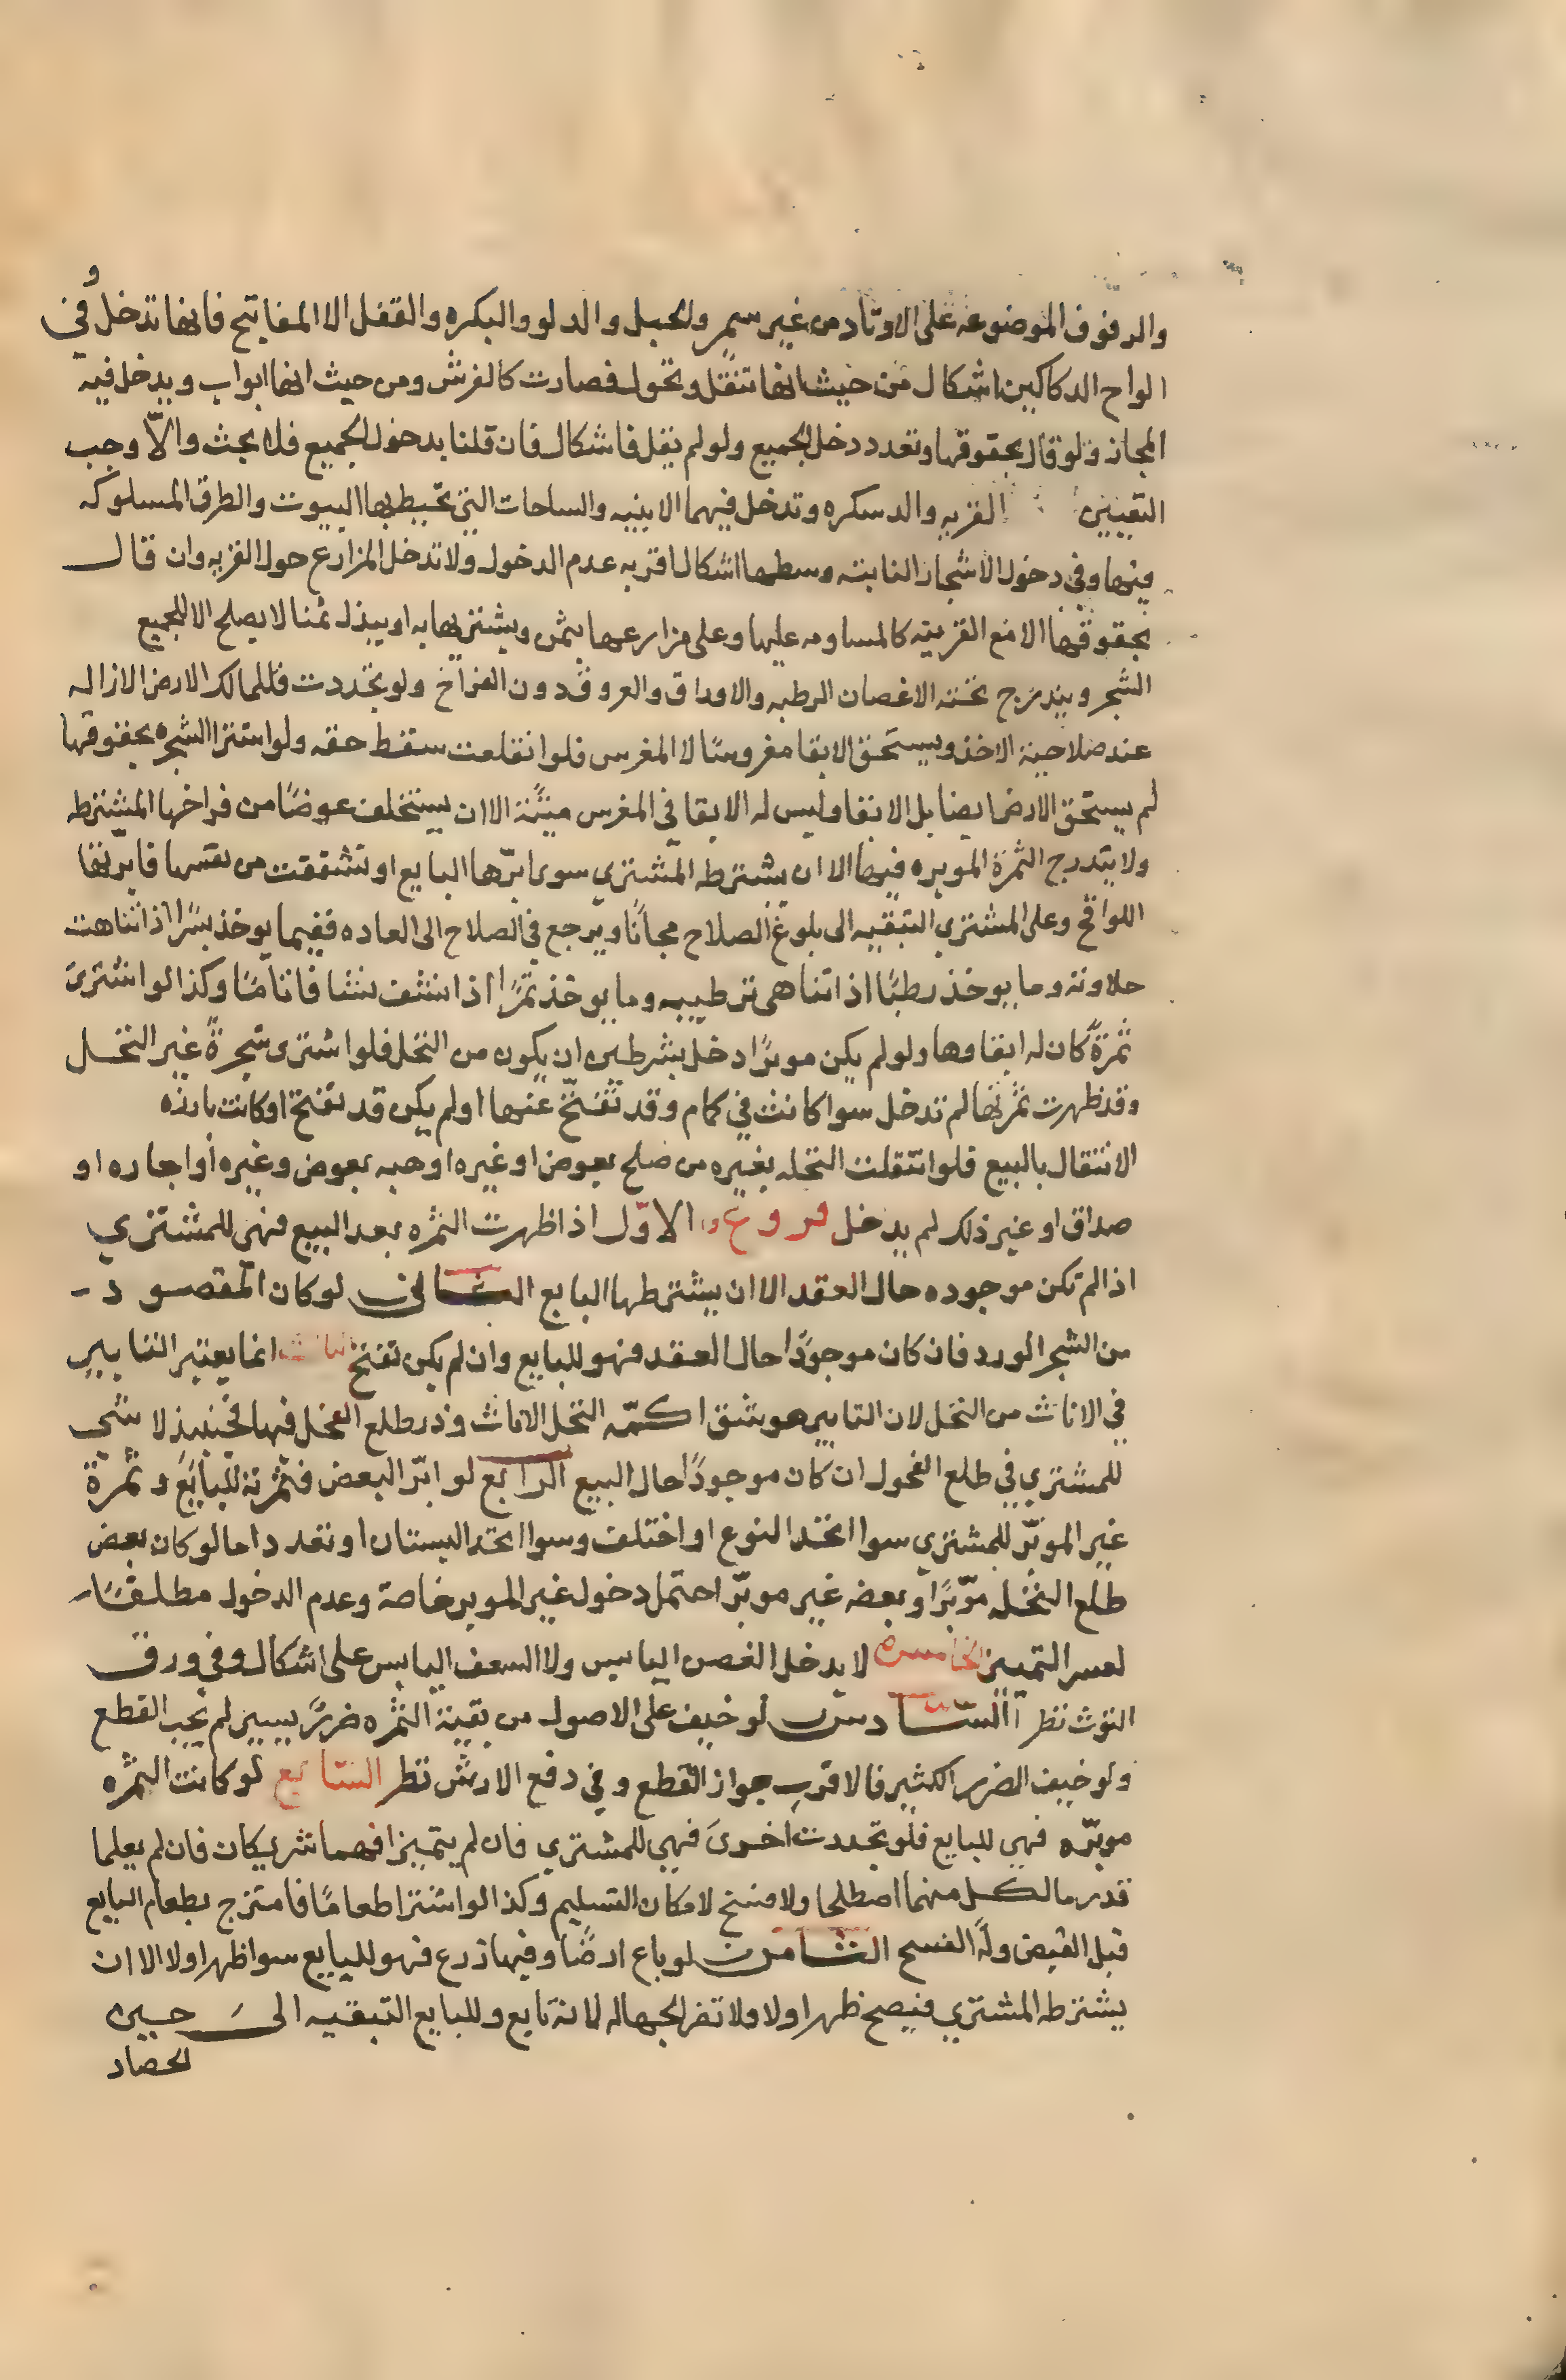 والرفوف الموضوعه على الاوتاد من غير سمر والحبل والدلو والبكره والقفل الا المفاتيح فانها تدخل وفي
الواح الدكاكين اشكال من حيث انها تنقل وتحول فصارت كالفرش ومن حيث انها ابواب ويدخل فيه
المجاز ولو قال بحقوقها وتعدد دخل الجميع ولو لم يقل فاشكال فان قلنا بدخول الجميع فلا بحث والّا وجب
التعيين القريه والدسكره وتدخل فيهما الابنيه والساحات التي تحيط بها البيوت والطرق المسلوكه
فيها وفي دخول الاشجار النابته وسطها اشكال اقربه عدم الدخول ولا تدخل المزارع حول القريه وان قال
بحقوقها الا مع القرينه كالمساومه عليها وعلى مزارعها بثمن ويشتريها به او يبذل ثمنا لا يصلح الا للجميع
الشجر ويندرج تحته الاغصان الرطبه والاوراق والعروق دون الفراخ ولو تجددت فللمالك الارض الازاله
عند صلاحية الاخذ ويستحق الابقا مغروسًا لا المغرس فلو انقلعت سقط حقه ولو استثنا الشجره بحقوقها
لم يستحق الارض ايضا بل الابقا وليس له الابقا في المغرس ميتًة الا ان يستخلف عوضًا من فراخها المشترطه
ولا يندرج الثمرة الموبره فيها الا ان يشترطه المشتري سوى ابّرها البايع او تشققت من نفسها فابّرتها
اللواقح وعلى المشتري التبقيه الى بلوغ الصلاح مجانًا ويرجع في الصلاح الى العاده ففيما يوخذ بسرًا اذا تناهت
حلاوته وما يوخذ رطبًا اذا تناهى ترطيبه وما يوخذ تمرًا اذا نشف نشفا فاناما وكذا لو اشترى
ثمرةً كان له ابقاوها ولو لم يكن موبرًا دخل بشرطين ان يكون من النخل فلو اشترى شجرةً غير النخل
وقد ظهرت ثمرتها لم تدخل سوا كانت في كمام وقد تفتّح عنها او لم يكن قد تفتح او كانت بارزه
الانتقال بالبيع فلو انتقلت النخله بغيره من صلح بعوض او غيره او هبه بعوض وغيره أو اجاره او
صداق او غير ذلك لم يدخل فروع الاوّل اذا ظهرت الثمره بعد البيع فهي للمشتري
اذا لم تكن موجوده حال العقد الا ان يشترطها البايع الثاني لو كان المقصود
من الشجر الورد فان كان موجودًا حال العقد فهو للبايع وان لم يكن تفتح الثالث انما يعتبر التابير
في الاناث من النخل لان التابير هو شق اكمّه النخل الاناث وذر طلع الفحل فيها فحينيذ لا شي
للمشتري في طلع الفحول ان كان موجودًا حال البيع الرابع لو ابّر البعض فثمرته للبايع وثمرة
غير الموبّر للمشتري سوا اتحد النوع او اختلف وسوا اتحد البستان او تعدد اما لو كان بعض
طلع النخله موّبرًا وبعضه غير موبّر احتمل دخول غير الموبر خاصة وعدم الدخول مطلقًا
لعسر التمييز الخامس لا يدخل الغصن اليابس ولا السعف اليابس على اشكال وفي ورق
التوث نظر السادس لو خيف على الاصول من تبقية الثمره ضررٌ يسير لم يجب القطع
ولو خيف الضرر الكثير فالاقرب جواز القطع وفي دفع الارش نظر السابع لو كانت الثمره
موبّره فهي للبايع فلو تجددت اخرى فهي للمشتري فان لم يتميزا فهما شريكان فان لم يعلما
قدر ما لكل منهما اصطلحا ولا فسخ لامكان التسليم وكذا لو اشترا طعامًا فامتزج بطعام البايع
قبل القبض وله الفسخ الثامن لو باع ارضًا وفيها زرع فهو للبايع سوا ظهر اولا الا ان
يشترطه المشتري فيصح ظهر اولا ولا تضر الجهاله لانه تابع وللبايع التبقيه الى حين
الحصاد